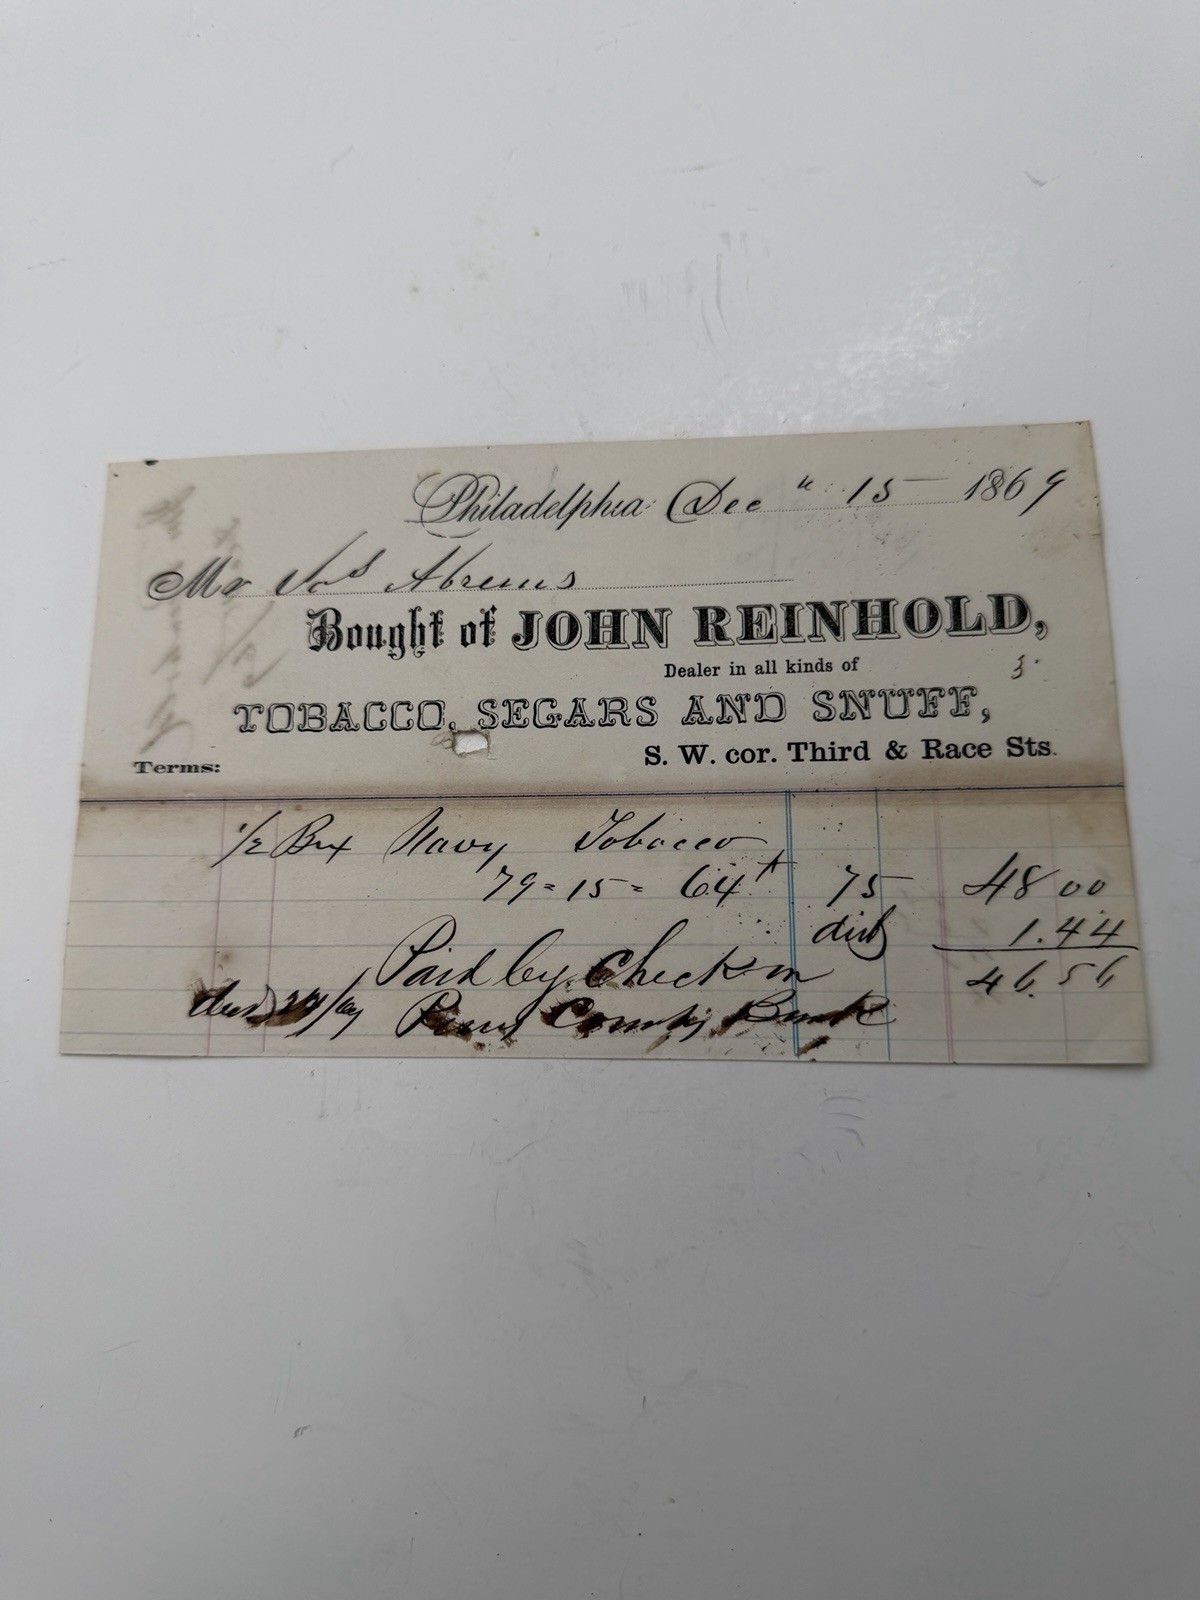 Philadelphia Dec " 15 1869
Mr Jos Abrems
Bought of JOHN REINHOLD,
Dealer in all kinds of
TOBACCO, SEGARS AND SNUFF,
S. W. cor. Third & Race Sts.
Terms:
1/2 Box Navy Tobacco
79 = 15 = 64 75 48 00
1.44
46.56
Paid by Check on
Penns County Bank